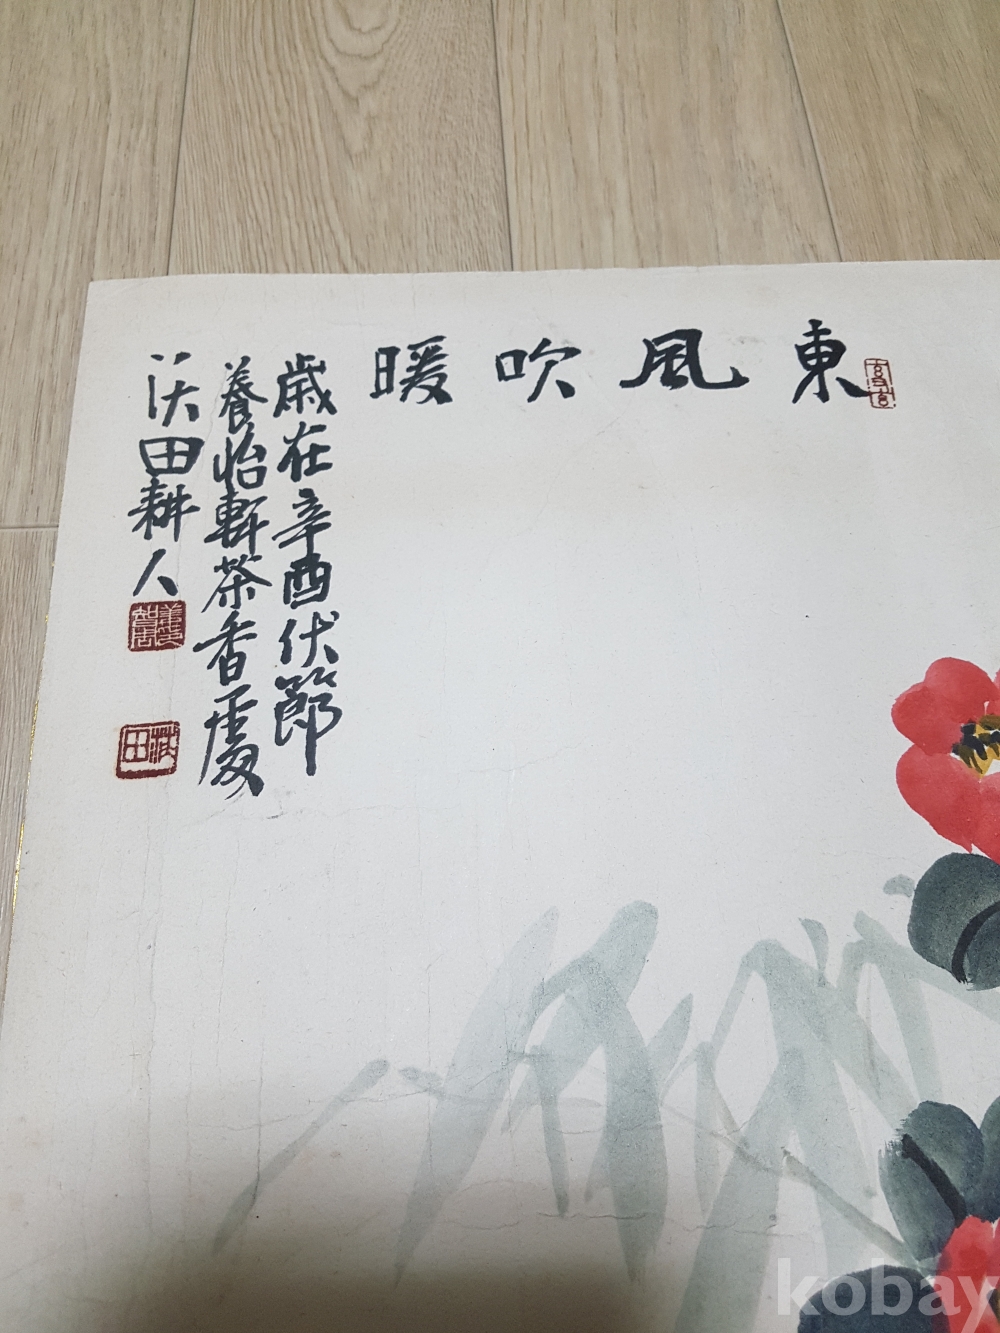 東風吹暖
歲在辛酉伏節
養怡軒茶香處
沃田耕人
姜印智周
沃田
kobay